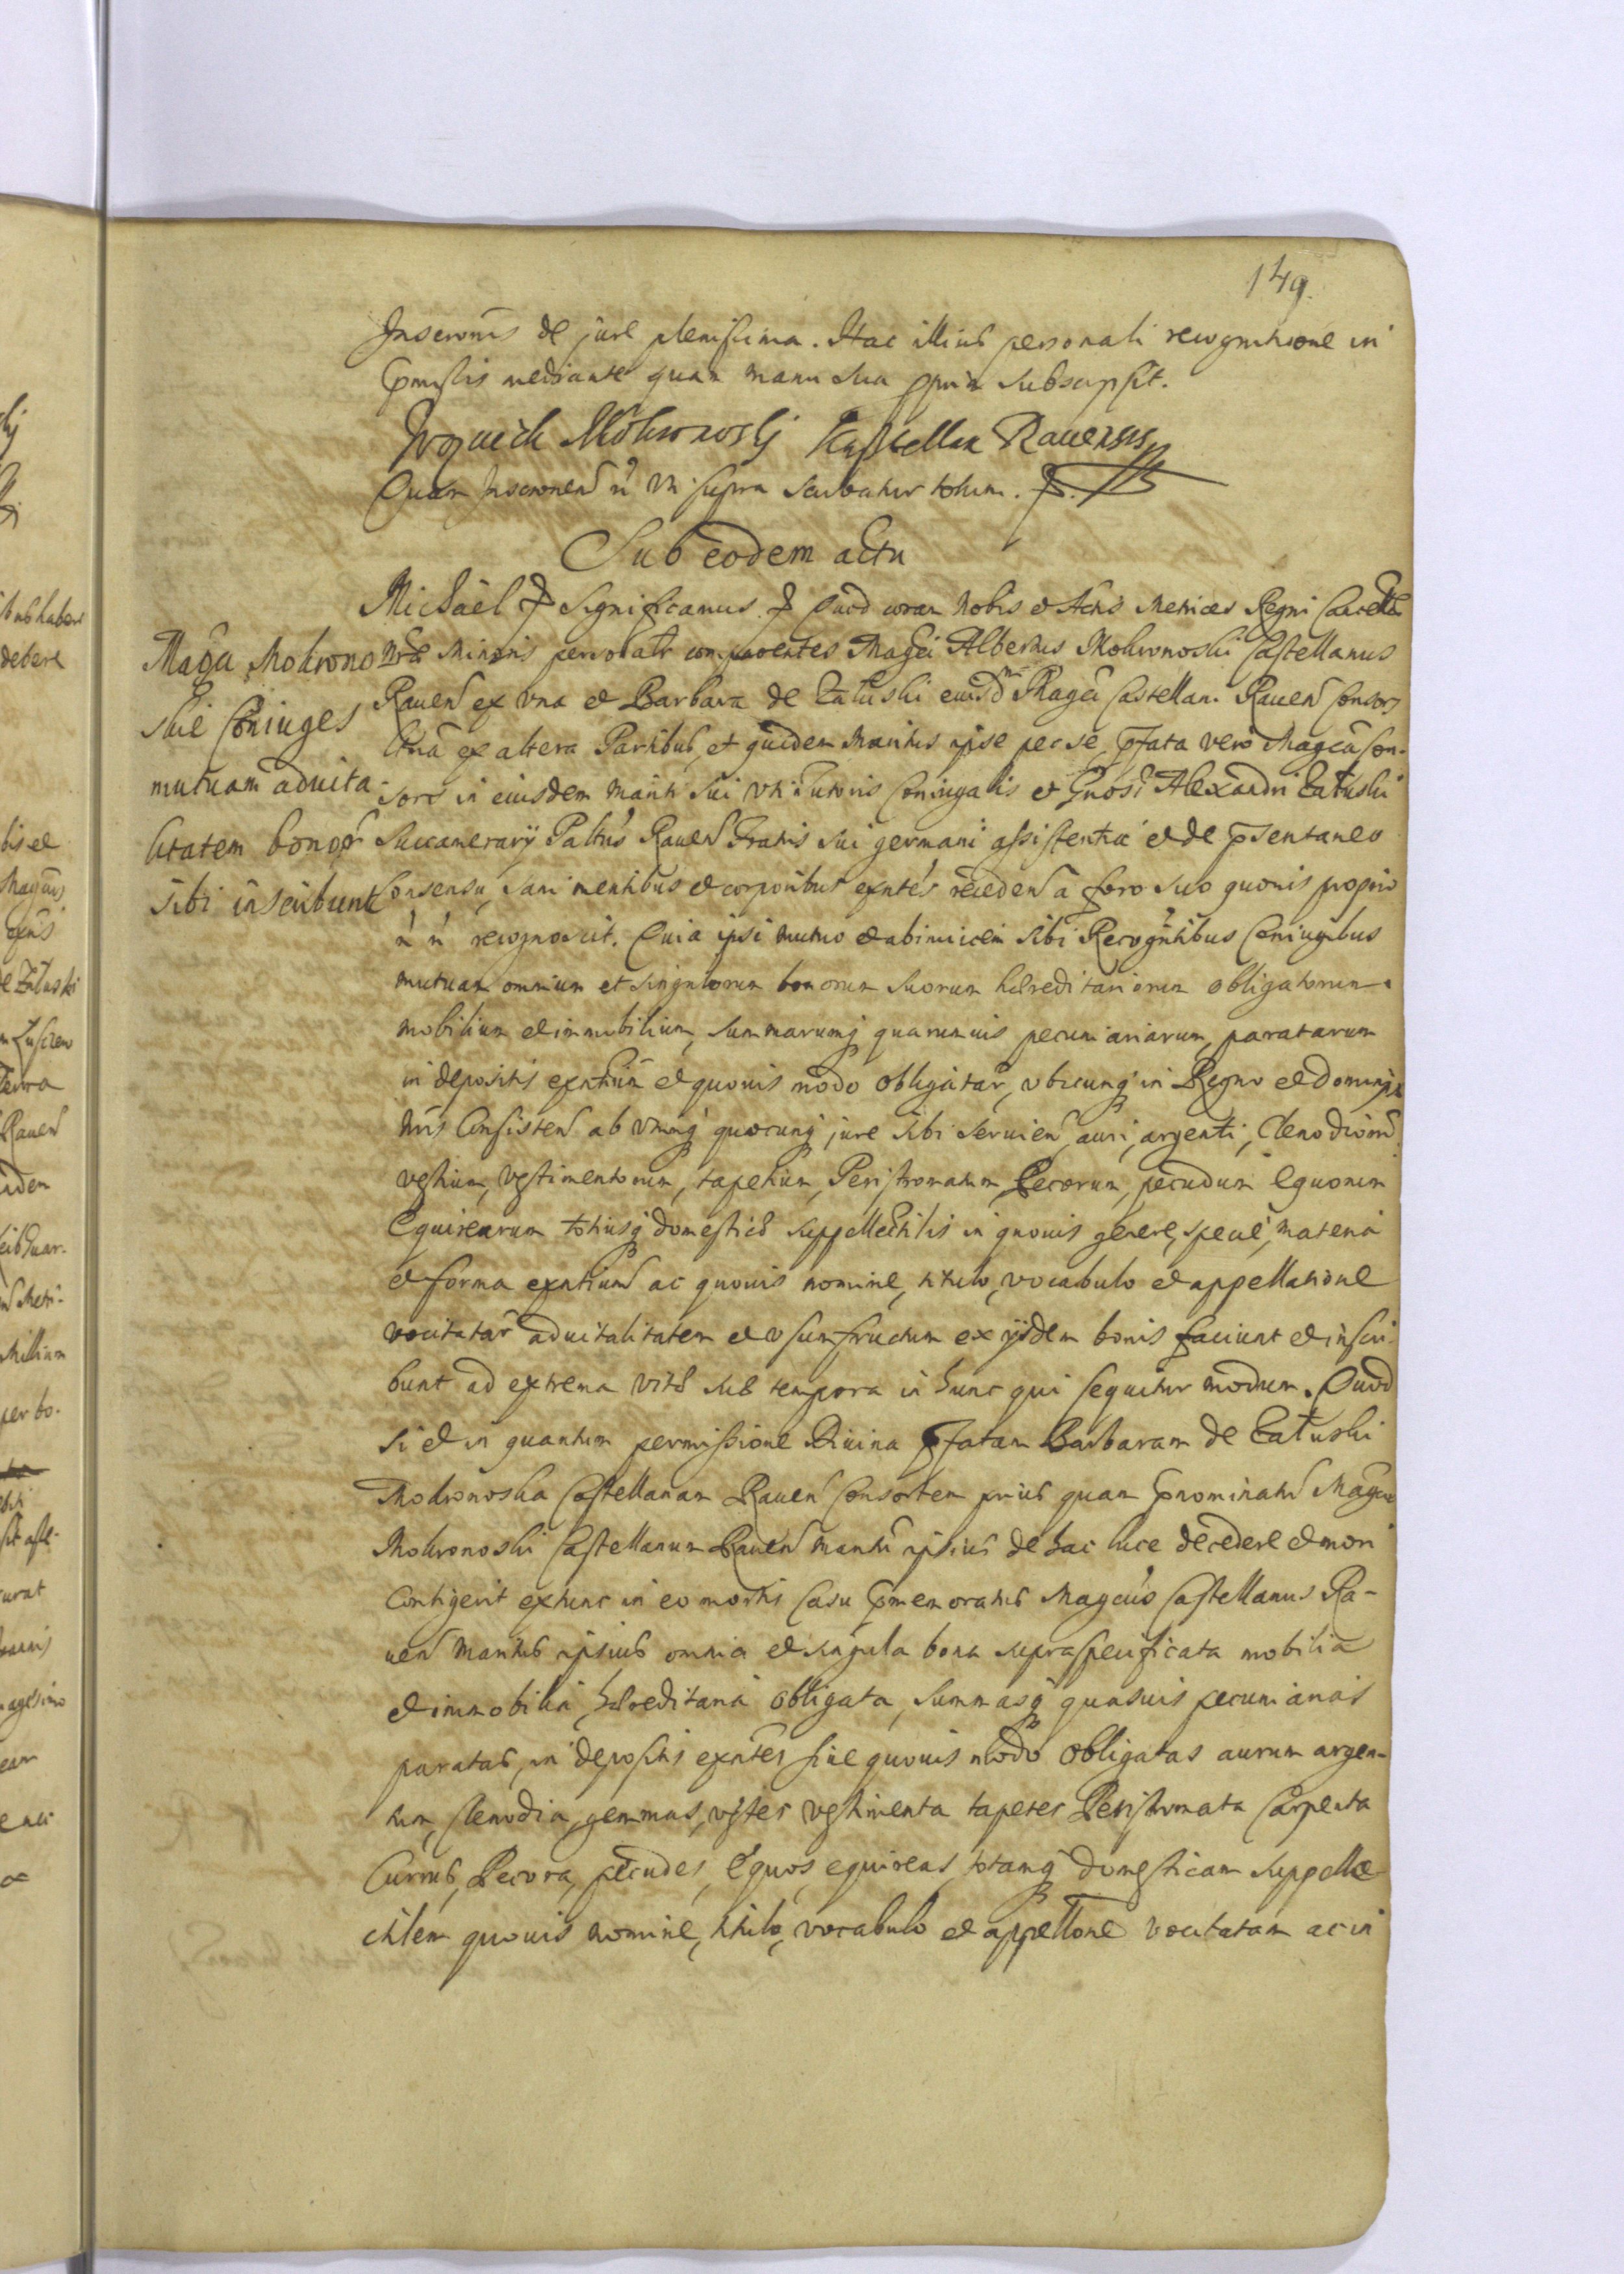 149.
Inscronis de jure plenissima. Hac illius personali recognitione in
pmissis mediante quam manu sua ppria subscripsit.
Woyciech Mokronoskj Kasztellan Rauensis
Quam Inscronem n̄ uti supra scribatur totum.
Sub eodem actu
Michael Significamus Quod coram Nobis et Actis Metrices Regni Cancellae
Mag̃ci Mokrono
Nrae Minoris personalr comparentes Mag̃ci Albertus Mokronoski Castellanus
skie Coniuges
Rauen ex vna et Barbara de Załuski eiusd Mag̃ci Castellani Rauen Consors
mutuam aduita
ltima ex altera Partibus, et quidem Maritus ipse per se, pfata vero Mag̃ca Con-
litatem bonor
sors in eiusdem mariti sui uti Tutoris Coniugalis et Gnosi Alexandri Załuski
sibi inscribunt
Succamerarij Paltus Rauen Fratris sui germani assistentia et de psentaneo
Consensu, sani mentibus et corporibus exntes recedens a foro suo quouis proprio
n̄ n̄ recognouit. Quia ipsi mutuo et abinuicem sibi Recogntibus Coniugibus
mutuam omnium et singulorum bonorum suorum hæreditariorum obligatorum
mobilium et immobilium, summarumq quarumuis pecuniariarum, paratarum
in depositis exntium et quouis modo obligatar, vbicunq in Regno et Dominijs
Nris Consisten ab vnoq quocunq jure sibi seruien, auri, argenti, Clenodiorũ
vestium, vestimentorum, tapetium, Peristromatum, Pecorum, pecudum Equorum
Equirearum totiusq domesticæ suppellectilis in quouis genere, specie, materia
et forma exntium ac quouis nomine, titulo, vocabulo et appellatione
vocitatar aduitalitatem et vsumfructum ex ijsdem bonis faciunt et inscri-
bunt ad extrema vitæ suæ tempora in hunc qui sequitur modum. Quod
si et in quantum permissione Diuina pfatam Barbaram de Załuski
Mokronoska Castellanam Rauen Consortem prius quam pnominatum Mag̃cum
Mokronoski Castellanum Rauen maritum ipsius de hac luce decedere et mori
Contigerit extunc in eo mortis Casu pmemoratus Mag̃cus Castellanus Ra-
uen Maritus ipsius omnia et singula bona supraspecificata mobilia
et immobilia, hæreditaria obligata, summasq quasuis pecuniarias
paratas, in depositis exntes siue quouis modo obligatas aurum argen-
tum, Clenodia, gemmas, vestes vestimenta tapetes Peristromata Carpenta
Currus, Pecora, pecudes, Equos, equireas, totamq domesticam suppelle-
ctilem quouis nomine, titulo, vocabulo et appeltione vocitatam ac in